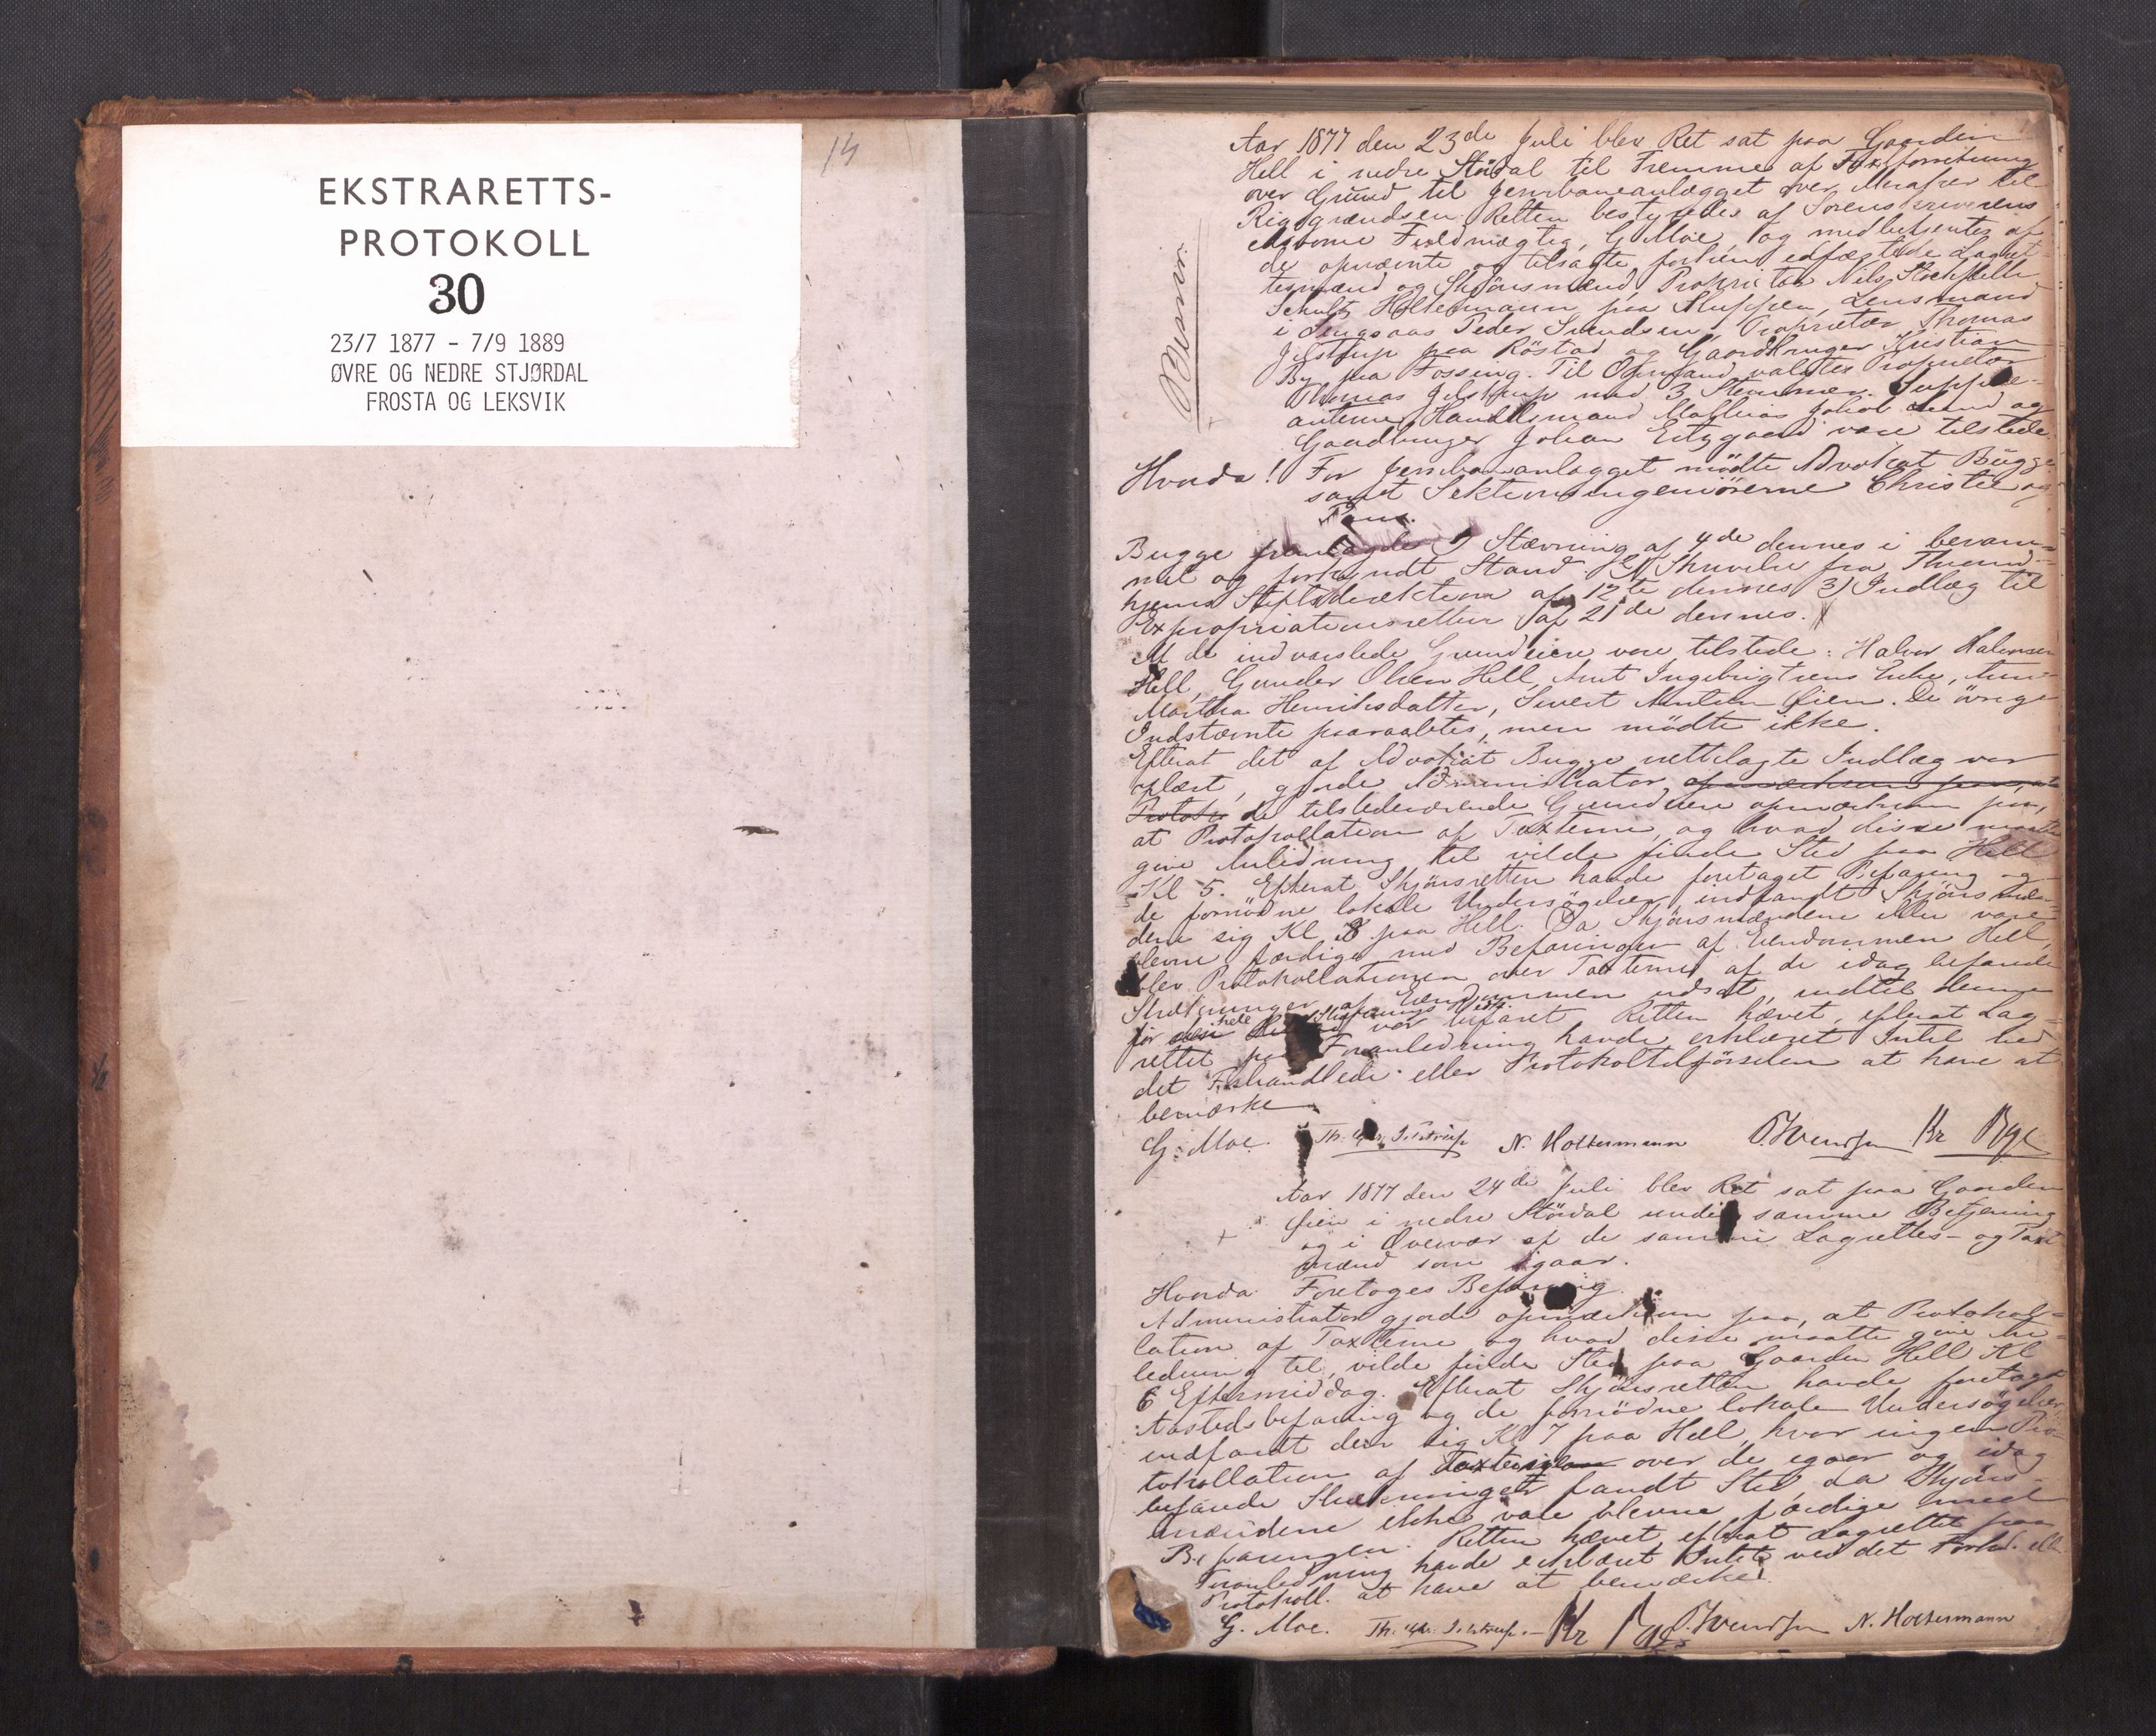 EKSTRARETTS-
PROTOKOLL
30
23/7 1877 - 7/9 1889
ØVRE OG NEDRE STJØRDAL
FROSTA OG LEKSVIK
Aar 1877 den 23de Juli blev Ret sat paa Gaarden
Hell i nedre Størdal til Fremme af Taxtforretning
over Grund til Jernbaneanlægget over Meraker til
Rigsgrændsen. Retten bestyredes af Sorenskriverens
edsvorne Fuldmægtig, G. Moe, og medbetjentes af
de opnævnte og tilsagte, forhen edfæstede Lagret-
tesmænd og Skjønsmænd, Proprietær Nils
Schultz Holtermann paa Ruppen, Lensmand
i Peder Svendsen, Proprietær Thomas
Jelstrup paa Röstad og Gaardbruger Kristian
By paa Fossing. Til Opmand valgtes Proprietær
Thomas Jelstrup med 3 Stemmer. Supple-
anterne, Handelsmand Mathias Jakob og
Gaardbruger Johan vare tilstede.
Hvorda! For Jernbaneanlægget mödte Advokat Bugge
samt Sektionsingeniörerne Christie og
Bugge fremlagde 1) Stævning af 4de dennes i beram-
met og forkyndt Stand 2) Skrivelse fra Thrond-
hjems Stiftsdirektion af 12te dennes 3) Indlæg til
Expropriationsretten af 21de dennes.
Af de indvarslede Grundeiere vare tilstede: Halvor Halvorsen
Hell, Gunder Olsen Hell, Arnt Ingebrigtsens Enke,
Martha Henriksdatter, Sivert Øien. De övrige
Indstævnte paaraabtes, men mödte ikke.
Efterat det af Advokat Bugge rettelagte Indlæg var
oplæst, gjorde Administrator opmærksom paa, at
Protoko de tilstedeværende Grundeiere opmærksom paa,
at Protokollation af Taxterne, og hvad disse maatte
give Anledning til vilde finde Sted paa Hell
Kl 5. Efterat Skjönsretten havde foretaget Befaring og
de fornödne lokale Undersögelser, indfandt Skjönsmæn-
dene sig Kl 8 paa Hell. Da Skjönsmændene ikke vare
blevne færdige med Befaringen af Eiendommen Hell,
blev Protokollationen over Taxterne af de idag befarede
Strækninger af Eiendommen udsat, indtil denne
för hele var befaret. Retten hævet, efterat Lag-
rettet paa Foranledning havde erklæret Intet ved
det Forhandlede eller Protokoltilförselen at have at
bemærke.
G. Moe. Th. Jelstrup N. Holtermann P. Svendsen Kr Bye
Aar 1877 den 24de Juli blev Ret sat paa Gaarden
Øien i nedre Størdal under samme Betjening
og i Overvær af de samme Lagrettes- og Taxt
mænd som igaar.
Hvorda Foretoges Befaring.
Administrator gjorde opmærksom paa, at Protokol-
lation af Taxterne og hvad disse maatte give An-
ledning til, vilde finde Sted paa Gaarden Hell Kl
6 Eftermiddag. Efterat Skjönsretten havde foretaget
Aastedsbefaring og de fornödne lokale Undersögelser,
indfandt den sig Kl 7 paa Hell, hvor ingen Pro-
tokollation af Taxterne over de igaar og idag
befarede Strækninger fandt Sted, da Skjöns-
mændene ikke vare blevne færdige med
Befaringen. Retten hævet efterat Lagrettet paa
Foranledning havde erklæret Intet ved det Forh. ell
Protokoll. at have at bemærke.
G. Moe. Th. Jelstrup. Kr Bye P. Svendsen N. Holtermann